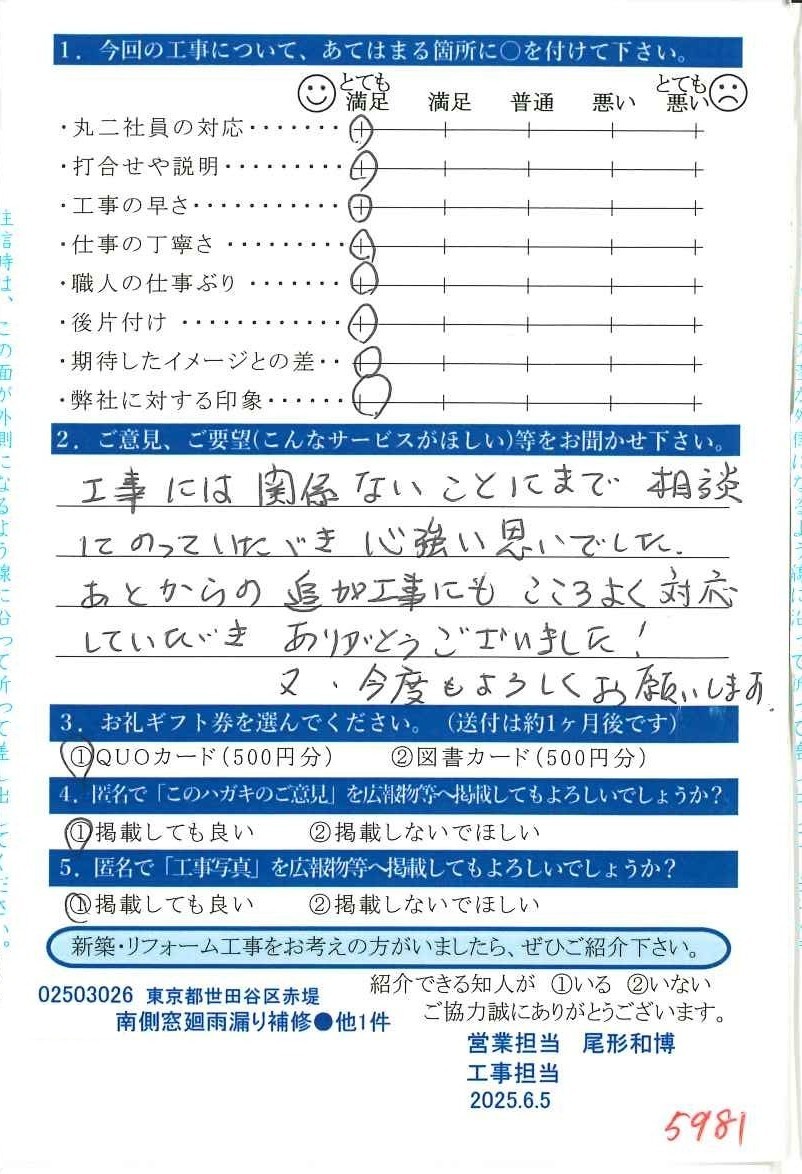 1．今回の工事について、あてはまる箇所に○を付けて下さい。
とても満足 満足 普通 悪い とても悪い
・丸二社員の対応・・・・・・・
・打合せや説明・・・・・・・・
・工事の早さ・・・・・・・・・・
・仕事の丁寧さ・・・・・・・・
・職人の仕事ぶり・・・・・・・
・後片付け・・・・・・・・・・・
・期待したイメージとの差・・
・弊社に対する印象・・・・・・
2．ご意見、ご要望(こんなサービスがほしい)等をお聞かせ下さい。
工事には関係ないことにまで相談
にのっていただき心強い思いでした。
あとからの追加工事にもこころよく対応
していただき ありがとうございました！
又、今度もよろしくお願いします。
3．お礼ギフト券を選んでください。（送付は約1ヶ月後です）
①QUOカード(500円分) ②図書カード(500円分)
4．匿名で「このハガキのご意見」を広報物等へ掲載してもよろしいでしょうか？
①掲載しても良い ②掲載しないでほしい
5．匿名で「工事写真」を広報物等へ掲載してもよろしいでしょうか？
①掲載しても良い ②掲載しないでほしい
新築・リフォーム工事をお考えの方がいましたら、ぜひご紹介下さい。
紹介できる知人が ①いる ②いない
02503026 東京都世田谷区赤堤
ご協力誠にありがとうございます。
南側窓廻雨漏り補修●他1件
営業担当 尾形和博
工事担当
2025.6.5
5981